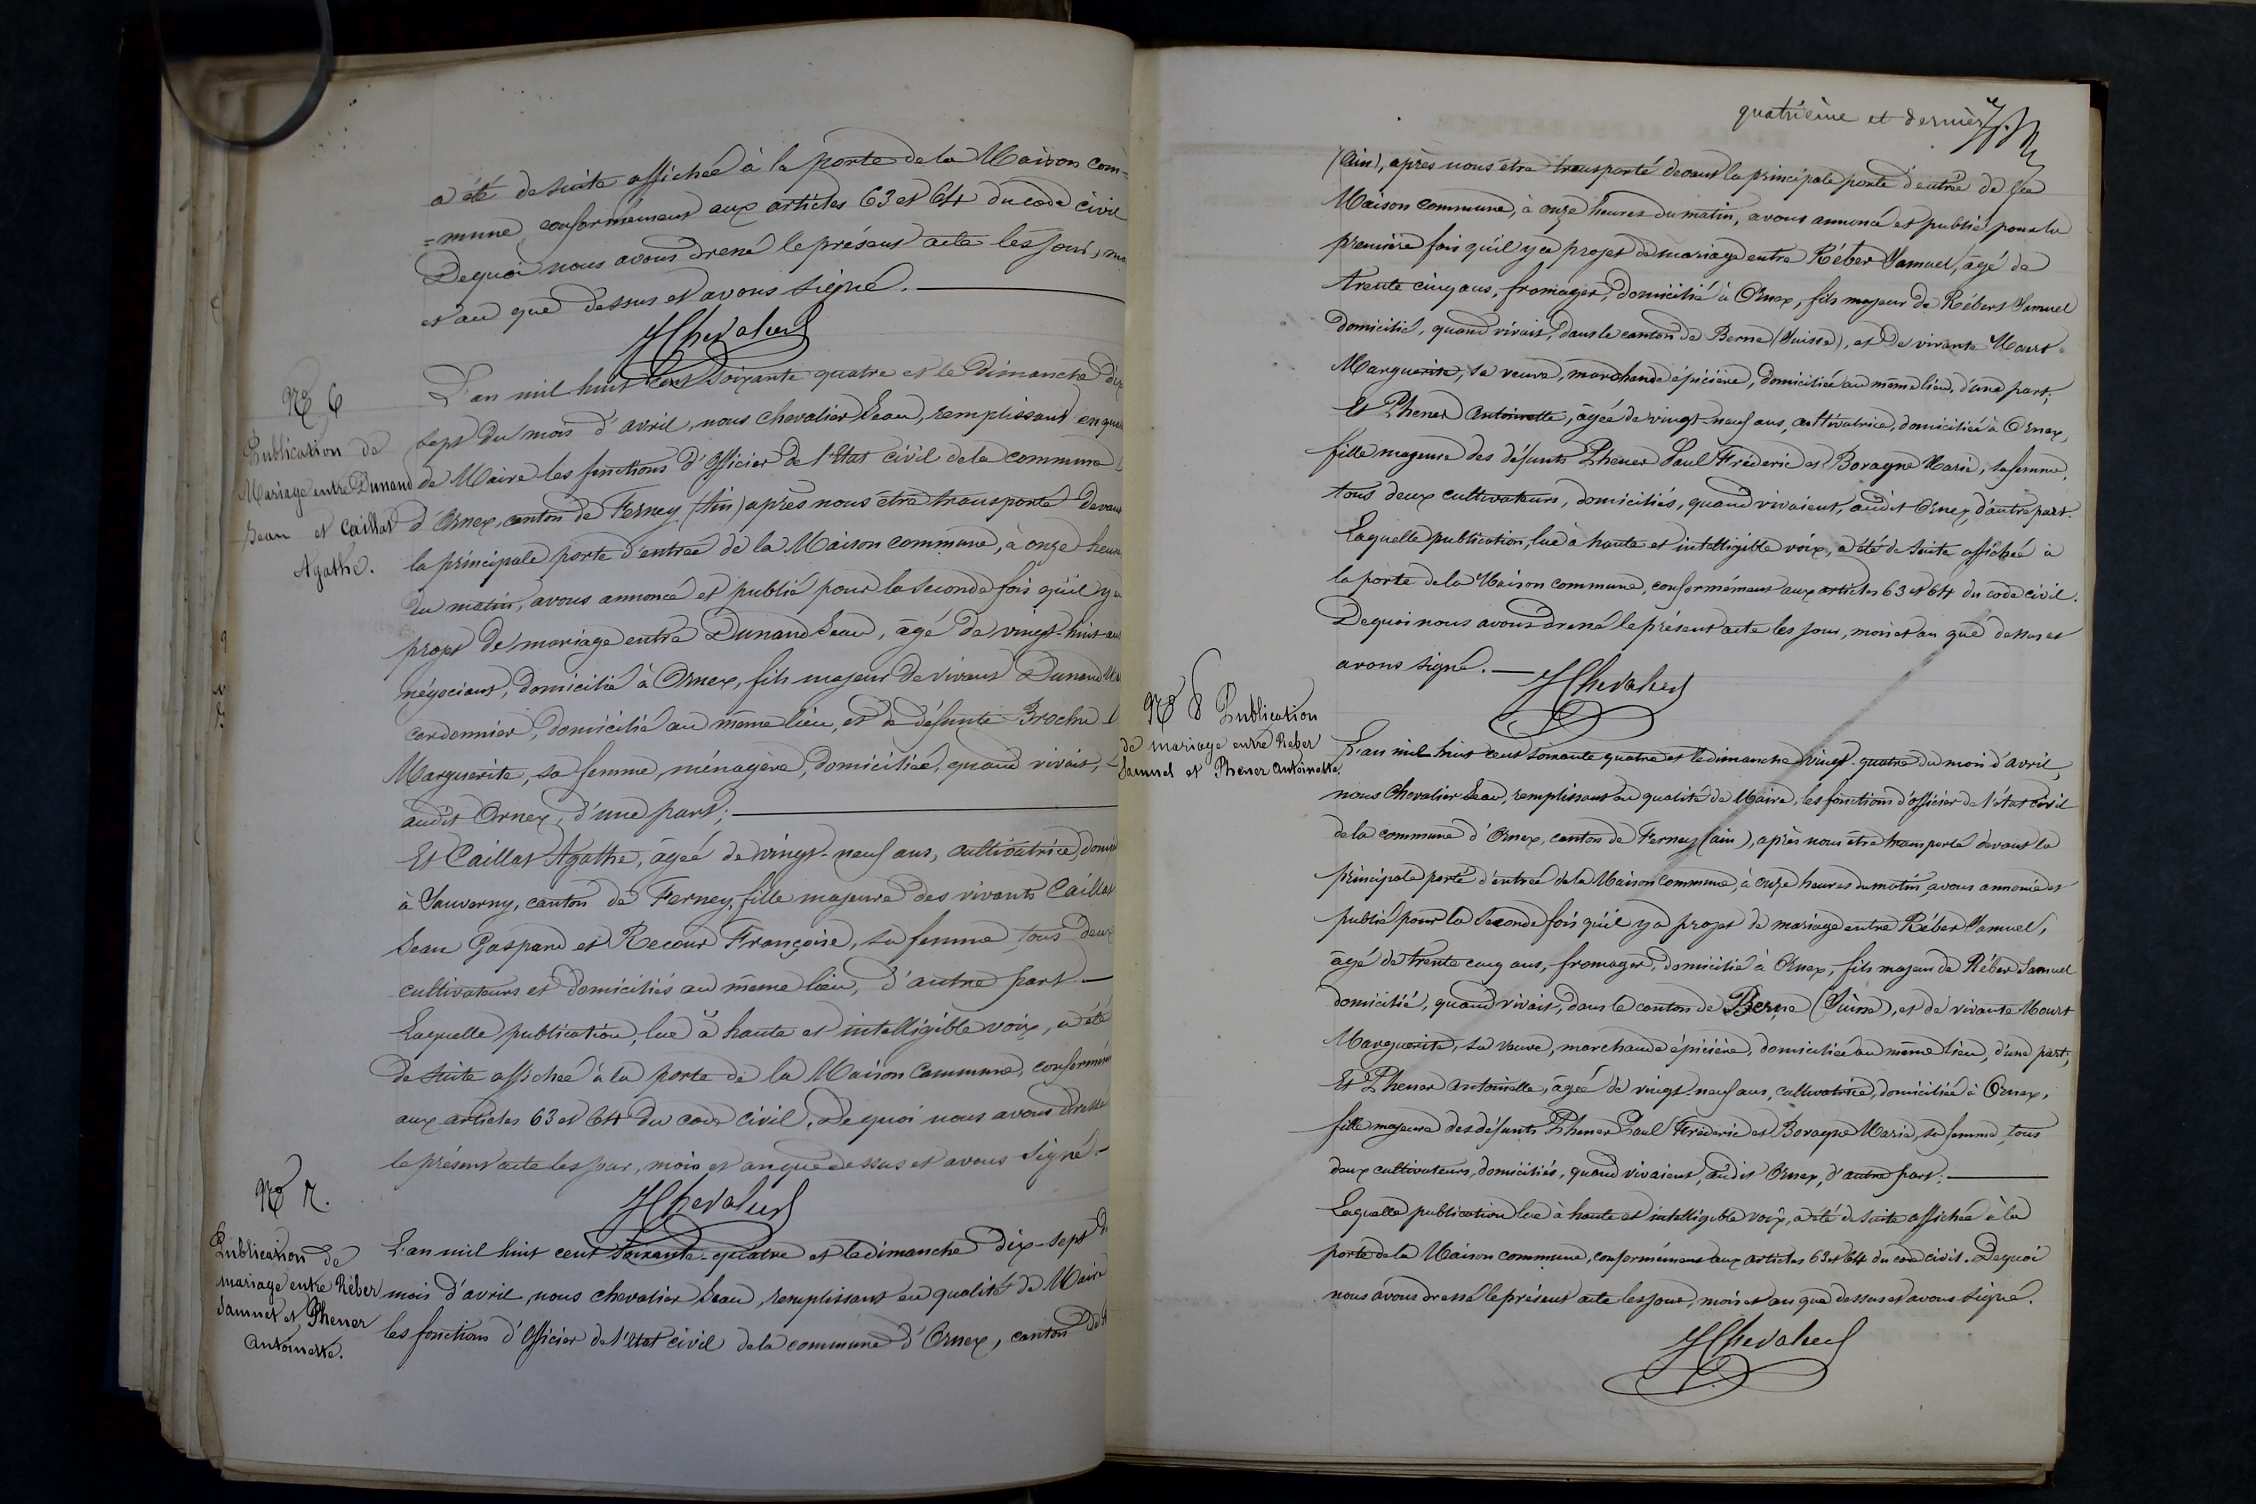 a été de suite affichée à la porte de la Maison com=
=mune, conformément aux articles 63 et 64 du code civil
De quoi nous avons dressé le présent acte les jour,
et an que dessus et avons signé.
JChevalier
N° 6
Publication de
Mariage entre Dunand
Jean et Caillat
Agathe.
L'an mil huit cent soixante quatre et le Dimanche dix
sept du mois d'avril, nous Chevalier Jean, remplissant en
de Maire les fonctions d'Officier de l'Etat civil de la commune
d'Ornex, canton de Ferney (Ain) après nous être transporté devant
la principale porte d'entrée de la Maison commune, à onze heures
du matin, avons annoncé et publié pour la seconde fois qu'il y a
projet de mariage entre Dunand Jean, âgé de vingt-huit ans
négociant, domicilié à Ornex, fils majeur de vivant Dunand
cordonnier, domicilié au même lieu, et de défunte Brochu
Marguerite, sa femme, ménagère, domiciliée, quand vivait,
audit Ornex, d'une part;
Et Caillat Agathe, âgée de vingt-neuf ans, cultivatrice,
à Sauverny, canton de Ferney, fille majeure des vivants Caillat
Jean Gaspard et Recour Françoise, sa femme, tous deux
cultivateurs et domiciliés au même lieu, d'autre part
Laquelle publication, lue à haute et intelligible voix, a été
de suite affichée à la porte de la Maison Commune,
aux articles 63 et 64 du code civil. De quoi nous avons dressé
le présent acte les jour, mois et an que dessus et avons signé.
JChevalier
N° 7.
Publication de
mariage entre Réber
Samuel et Phener
Antoinette.
L'an mil huit cent soixante-quatre et le dimanche dix-sept du
mois d'avril, nous Chevalier Jean, remplissant en qualité de Maire
les fonctions d'Officier de l'Etat civil de la commune d'Ornex, canton de
quatrième et dernier
(Ain), après nous être transporté devant la principale porte d'entrée de la
Maison commune, à onze heures du matin, avons annoncé et publié pour la
première fois qu'il y a projet de mariage entre Réber Samuel, âgé de
trente cinq ans, fromager, domicilié à Ornex, fils majeur de Rébert Samuel
domicilié, quand vivait, dans le canton de Berne (Suisse), et de vivante Mourt
Marguerite, sa veuve, marchande épicière, domiciliée au même lieu, d'une part;
Et Phener Antoinette, âgée de vingt-neuf ans, cultivatrice, domiciliée à Ornex,
fille majeure des défunts Phener Paul Fréderic et Boragne Marie, sa femme,
tous deux cultivateurs, domiciliés, quand vivaient, audit Ornex, d'autre part.
Laquelle publication, lue à haute et intelligible voix, a été de suite affichée à
la porte de la Maison commune, conformément aux articles 63 et 64 du code civil.
De quoi nous avons dressé le présent acte les jour, mois et an que dessus et
avons signé.
JChevalier
N° 8 Publication
de mariage entre Reber
Samuel et Phener Antoinette.
L'an mil huit cent soixante quatre et le dimanche vingt-quatre du mois d'avril,
nous Chevalier Jean, remplissant en qualité de Maire, les fonctions d'officier de l'état civil
de la commune d'Ornex, canton de Ferney (ain), après nous être transporté devant la
principale porte d'entrée de la Maison Commune, à onze heures du matin, avons annoncé et
publié pour la seconde fois qu'il y a projet de mariage entre Réber Samuel,
âgé de trente cinq ans, fromager, domicilié à Ornex, fils majeur de Réber Samuel
domicilié, quand vivait, dans le canton de Berne (Suisse), et de vivante Mourt
Marguerite, sa veuve, marchande épicière, domiciliée au même lieu, d'une part;
Et Phener Antoinette, âgée de vingt-neuf ans, cultivatrice, domiciliée à Ornex,
fille majeure des défunts Phener Paul Fréderic et Boragne Marie, sa femme, tous
deux cultivateurs, domiciliés, quand vivaient, audit Ornex, d'autre part.
Laquelle publication lue à haute et intelligible voix, a été de suite affichée à la
porte de la Maison commune, conformément aux articles 63 et 64 du code civil. De quoi
nous avons dressé le présent acte les jour, mois et an que dessus et avons signé.
JChevalier